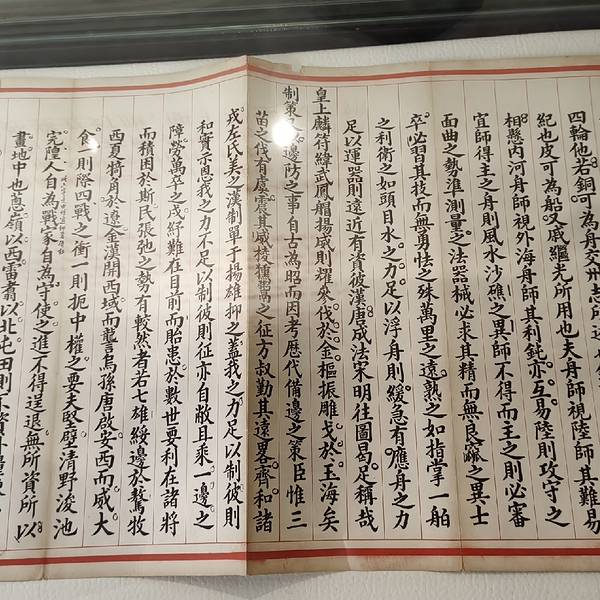 四輪他若銅可為舟交州志所
紀也皮可為船又戚繼光所用也夫舟師視陸師其難易
相懸內河舟師視外海舟師其利鈍亦互易陸則攻守之
宜師得主之舟則風水沙礁之異師不得而主之則必審
面曲之勢準測量之法器械必求其精而無良窳之異士
卒必習其技而無勇怯之殊萬里之遠熟之如指掌一舶
之利衛之如頭目水之力足以浮舟則緩急有應舟之力
足以運器則遠近有資彼漢唐成法宋明往圖曷足稱哉
皇上麟符緯武鳳艒揚威則耀參伐於金樞振雕戈於玉海矣
制策又以邊防之事自古為昭而因考歷代備邊之策臣惟三
苗之伐有虞震其威梭種鬻之征方叔勤其遠略齊和諸
戎左氏美之漢制單于揚雄抑之蓋我之力足以制彼則
和實示恩我之力不足以制彼則征亦自敝且乘一邊之
障勞萬卒之戍紓難在目前而貽患於數世要利在諸將
而積困於斯民張弛之勢有較然者右七雄綏邊於驁牧
西夏犄角於遼金漢開西域而讋烏孫唐啟安西而威大
食則際四戰之衝一則扼中權之要夫堅壁清野浚池
完隍人自為戰家自為守使之進不得逞退無所資所以
畫地中也恵嶺以西雷翥以北屯田則